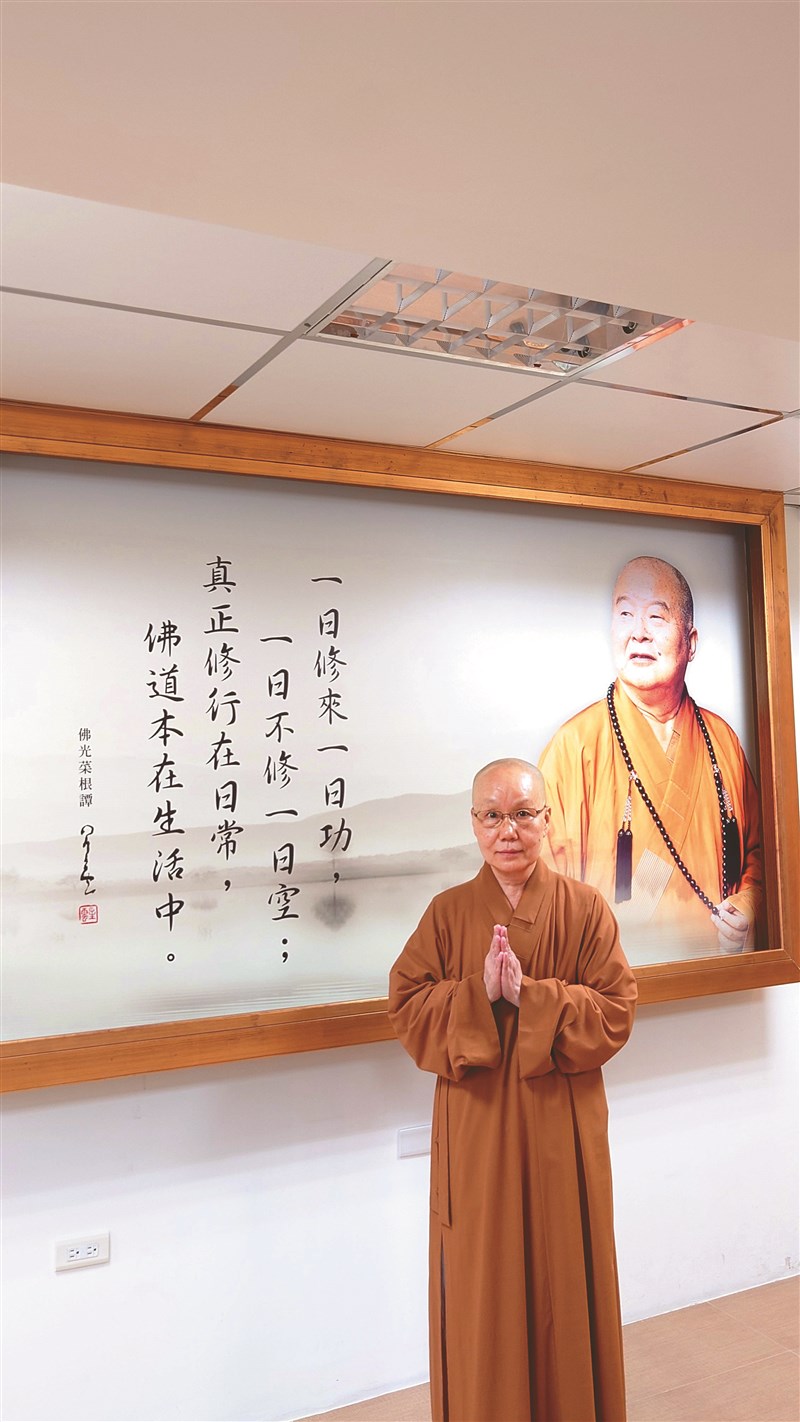 一日修來一日功，
一日不修一日空；
真正修行在日常，
佛道本在生活中。
佛光菜根譚
星雲